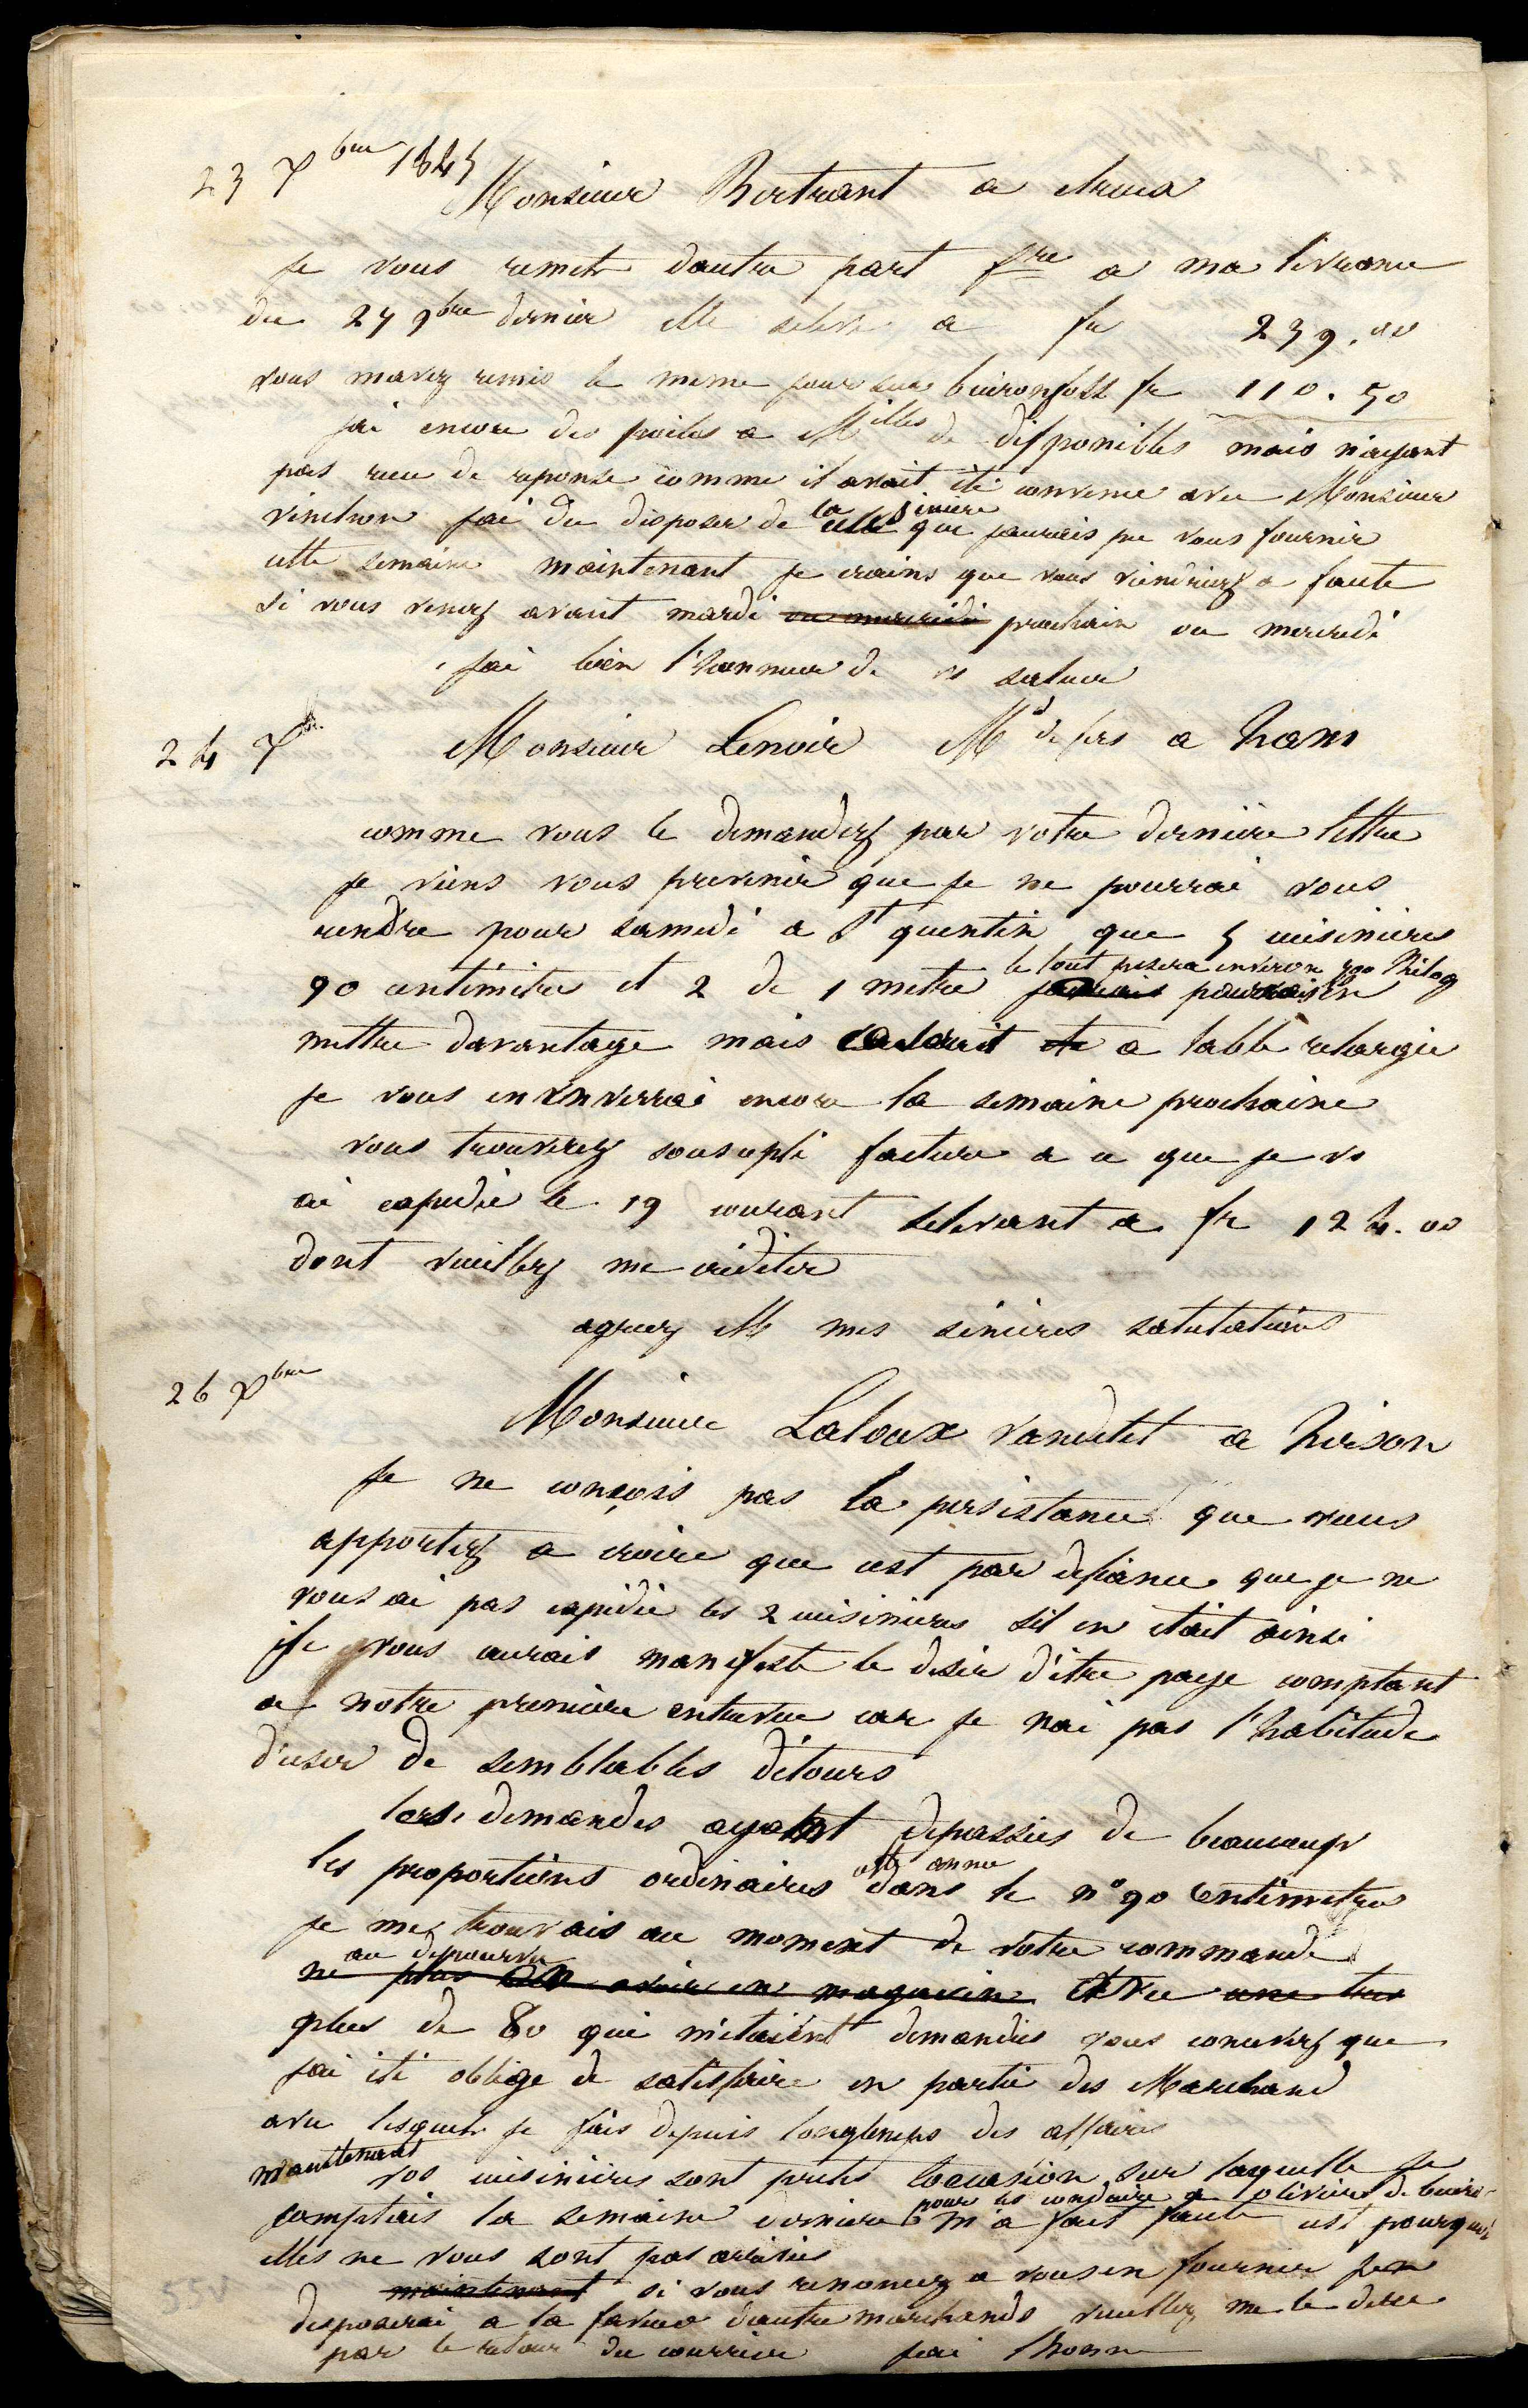 23 Xbre 1845
Monsieur Bertrant a
Je vous remets dautre part fre a ma livrance
du 27 9bre dernier elle seleve a fr 239.00
vous mavez remis le meme jour sur buironfosse fr 110.50
jai encore des poiles a Milles de disponibles mais nayant
pas recu de reponse comme il avait été convenu avec Monsieur
jai du disposer de la cuisiniere que jaurais pu vous fournir
cette semaine maintenant je crains que vous viendriez a faute
si vous venez avant mardi ou mercredi prochain ou mercredi
jai bien l'honneur de vs saluer
24 Xbre
Monsieur Lenoir Md de fers a ham
comme vous le demandez par votre derniere lettre
je viens vous prevenir que je ne pourrai vous
rendre pour samedi a St quentin que 5 cuisinieres
le tout pesera environ 500 Kilog
90 centimetre et 2 de 1 metre jaurais pourrais en
mettre davantage mais ca serait a table rechargée
je vous en enverrai encore la semaine prochaine
vous trouverez sous ce pli facture a ce que je vs
ai expedié le 19 courant selevant a fr 124.00
dont veuillez me créditer
agreez M mes sinceres salutations
26 Xbre
Monsieur Laloux vandelet a hirson
Je ne conçois pas la persistance que vous
apportez a croire que cest par defiance que je ne
vous ai pas expédié les 2 cuisinieres sil en était ainsi
je vous aurais manifesté le desir d'etre paye comptant
a notre premiere entrevue car je nai pas l'habitude
d'user de semblables détours
les demandes ayant depassées de beaucoup
les proportions ordinaires cette annee dans le n° 90 Centimetre
je me trouvais au moment de votre commande
au depourvu
ne plus en avoir en magasin et vu une
plus de 80 qui m'etaient demandés vous concevez que
jai été obligé de satisfaire en partie des Marchand
avec lesquels je fais depuis longtemps des affaires
maintenant vos cuisinieres sont pretes loccasion sur laquelle je
comptais la semaine derniere pour les conduire a lolivier de buiron m'a fait faute cest pourquoi
elles ne vous sont pas arrivées
maintenant si vous renoncez a vous en fournir jen
disposerai a la faveur dautre marchands veuillez me le dire
par le retour du courrier jai lhonn
55v